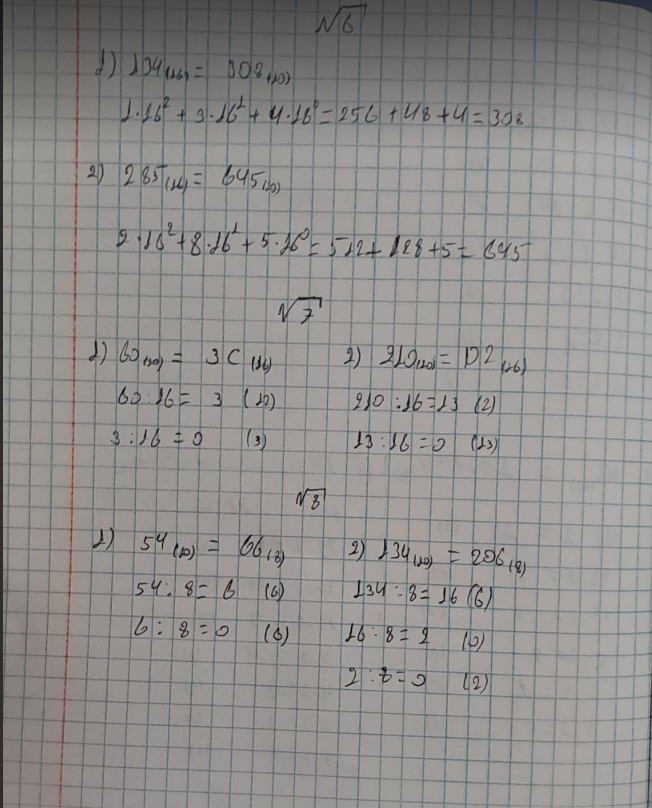 √6
1) 134(16) = 308(10)
1·16² + 3·16¹ + 4·16⁰ = 256 + 48 + 4 = 308
2) 285(16) = 645(10)
2·16² + 8·16¹ + 5·16⁰ = 512 + 128 + 5 = 645
√7
1) 60(10) = 3C(16)
60 : 16 = 3 (12)
3 : 16 = 0 (3)
2) 210(10) = D2(16)
210 : 16 = 13 (2)
13 : 16 = 0 (13)
√8
1) 54(10) = 66(8)
54 : 8 = 6 (6)
6 : 8 = 0 (6)
2) 134(10) = 206(8)
134 : 8 = 16 (6)
16 : 8 = 2 (0)
2 : 8 = 0 (2)